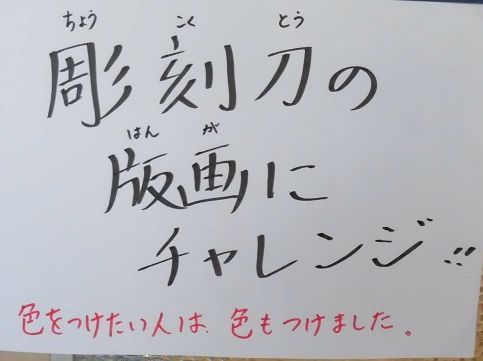 ちょう こく とう
彫刻刀の
はん が
版画に
チャレンジ!!
色をつけたい人は、色もつけました。